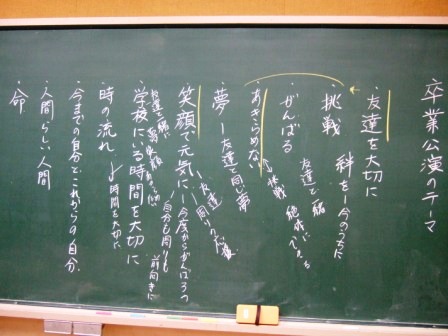 卒業公演のテーマ
・友達を大切に
絆を―今のうちに
・挑戦
・がんばる
友達と一緒
絶対に
・あきらめない
挑戦
・夢―友達と同じ夢
・笑顔で元気に―今度からがんばろう
友達
周りの
自分も周りも
友達と一緒
・学校にいる時間を大切に
前向きに
・時の流れ
時間を大切に
・今までの自分とこれからの自分
・人間らしい人間
・命